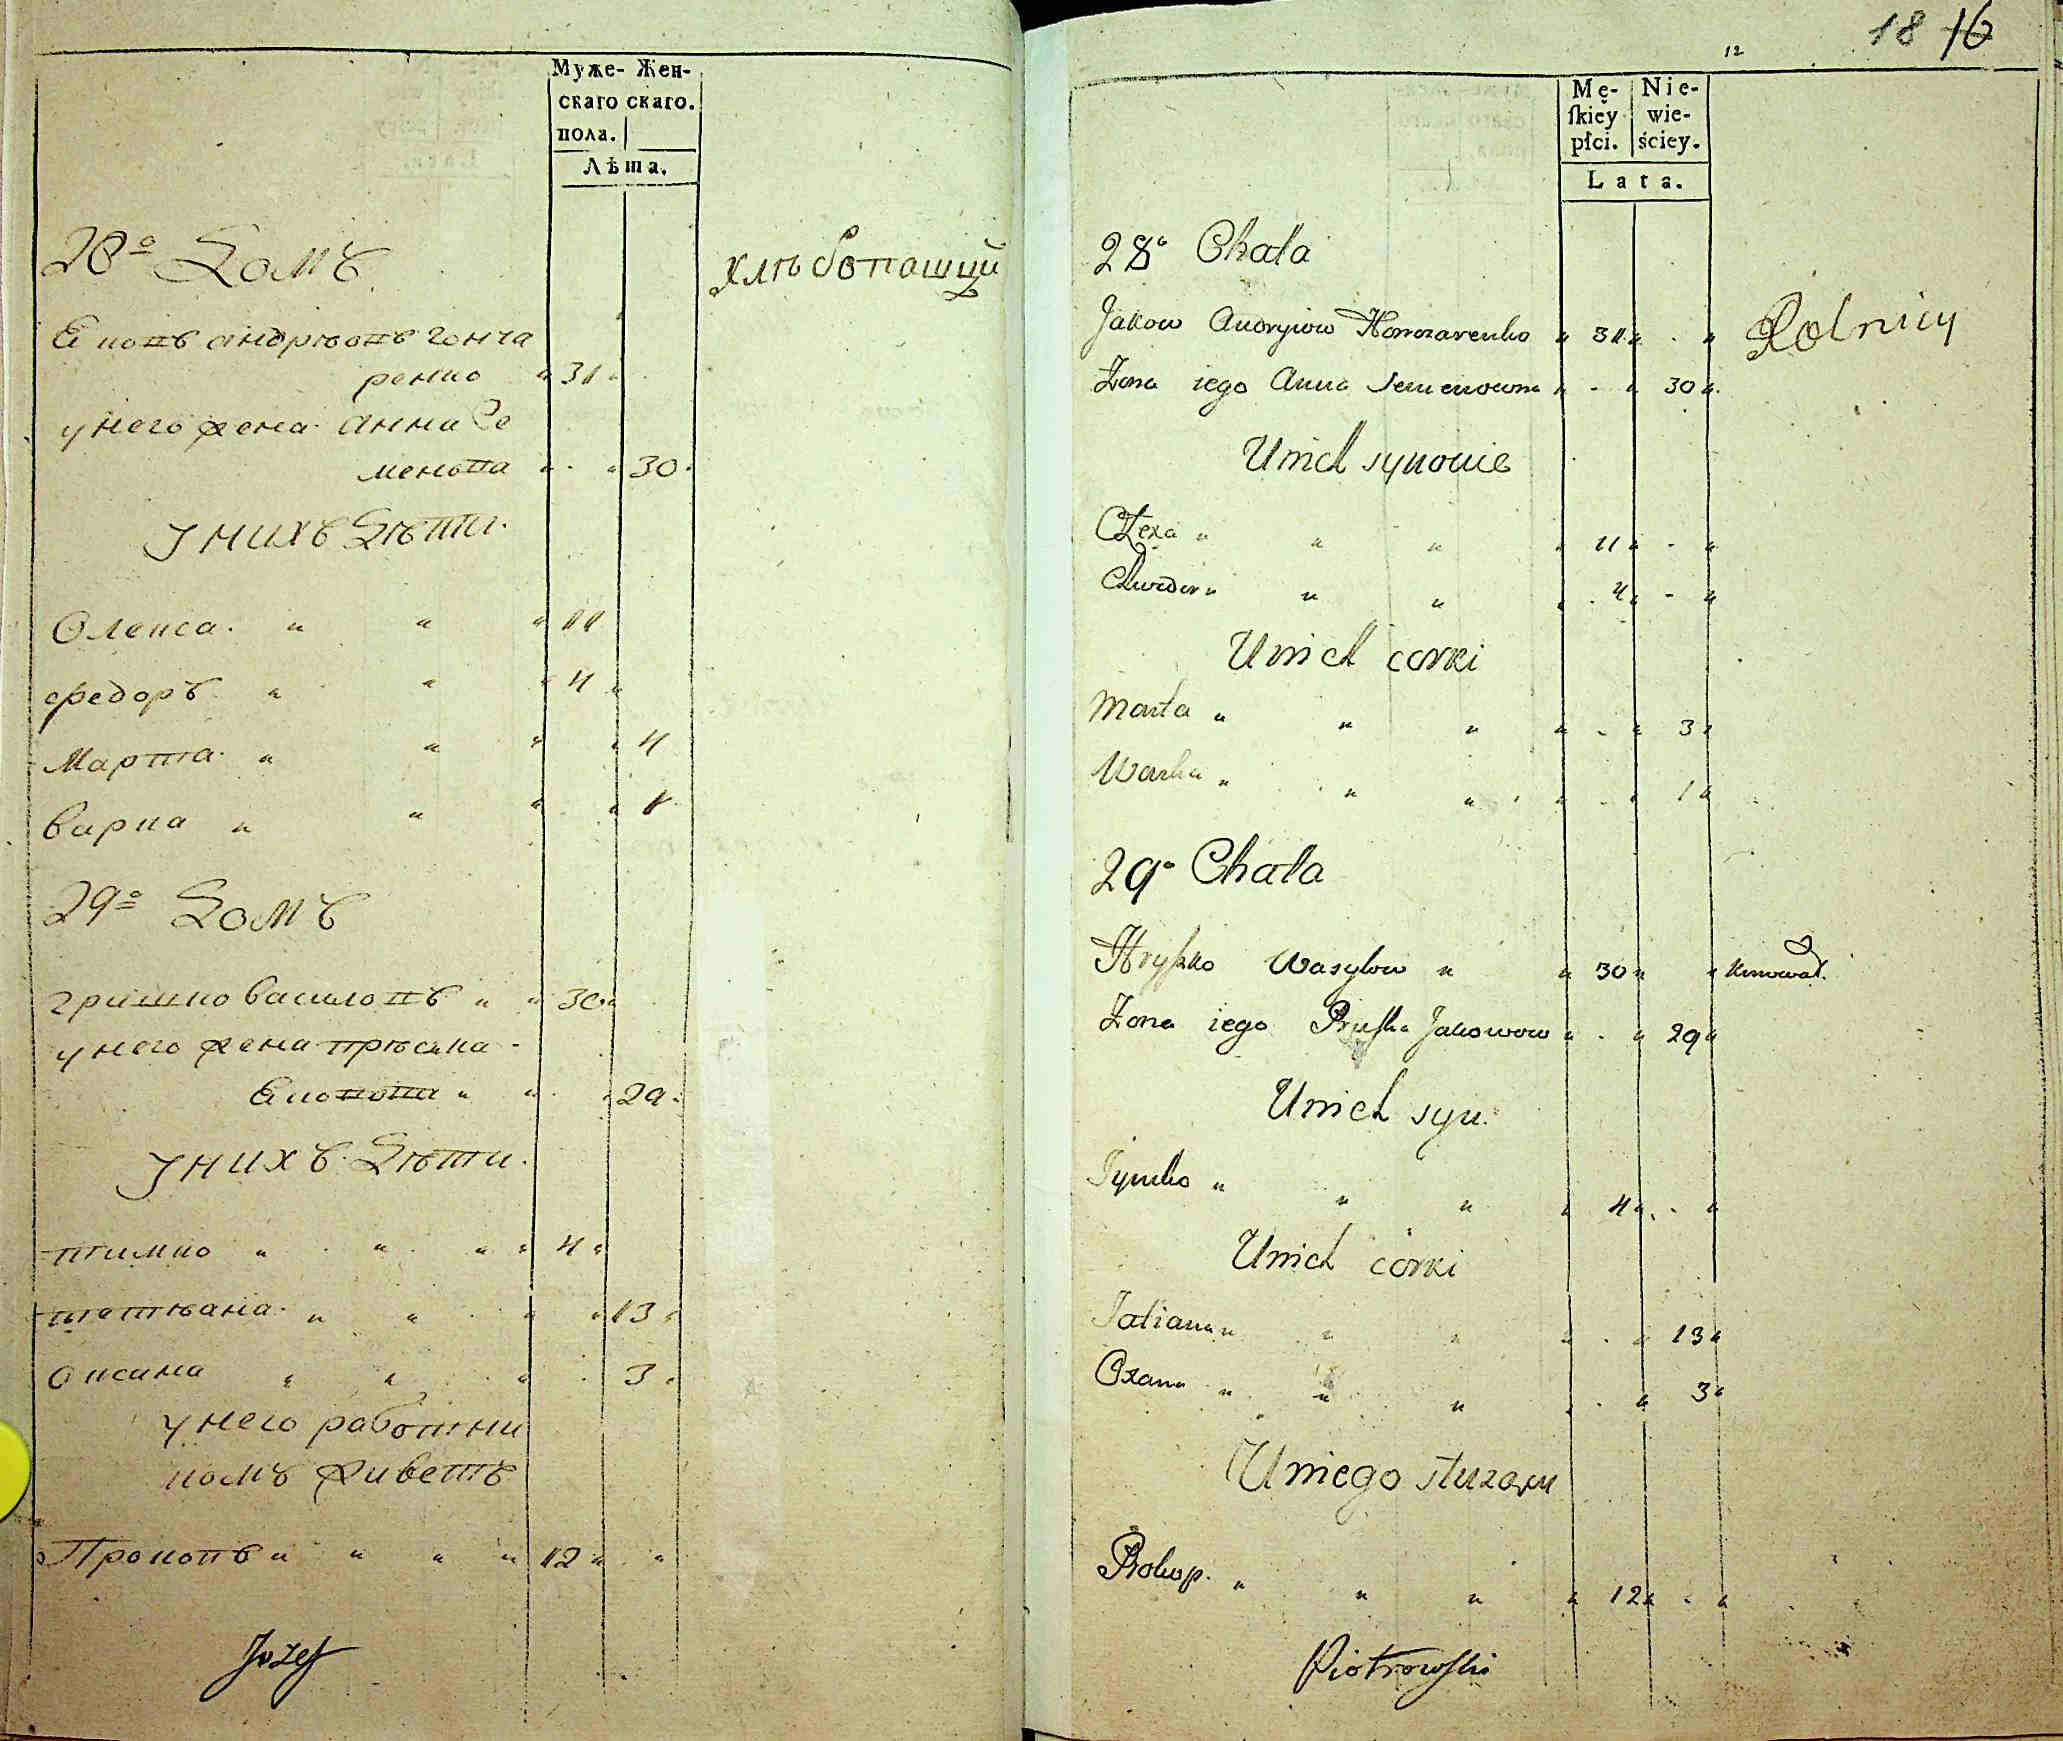 Муже- Жен-
скаго скаго.
пола.
Лѣта.
28º Домъ
хлѣбопашци
Яковъ андрѣовъ гонча
ренко " 31 "
у него жена Анна Се
менова " . " 30 .
У нихъ Дѣти.
Олекса. " " " 11
федоръ " " " 4 "
Марта. " " " " 4
варка " " " " 1
29º Домъ
гришко василовъ " " 30 "
у него жена прѣска
Яковова " " . " 29 .
У нихъ Дѣти.
тимко " " " " 4 "
тетѣана. " " " " 13 "
Оксана " " " . 3 "
у него работни
комъ живетъ
Прокопъ " " " " 12 " "
Jozef
18 16
12
Mę- Nie-
ſkiey wie-
płci. ściey.
Lata.
28º Chata
Jakow Andryiow Honczarenko " 31 " . " Rolnicy
Żona iego Anna Semenowna " - " 30 "
U nich synowie
Olexa " " " " 11 " - "
Chwedor " " " " 4 " - "
U nich corki
Marta " " " " . " 3 "
Warka " " " " . " 1 "
29º Chata
Hryſzko Wasylow " " 30 " "
Żona iego Pruſka Jakowow " . " 29 "
U nich syn.
Tymko " " " " 4 " . - "
U nich corki
Tatiana " " " " . " 13 "
Oxana " " " " . " 3 "
U niego służący
Prokop. " " " " 12 " - "
Piotrowſki